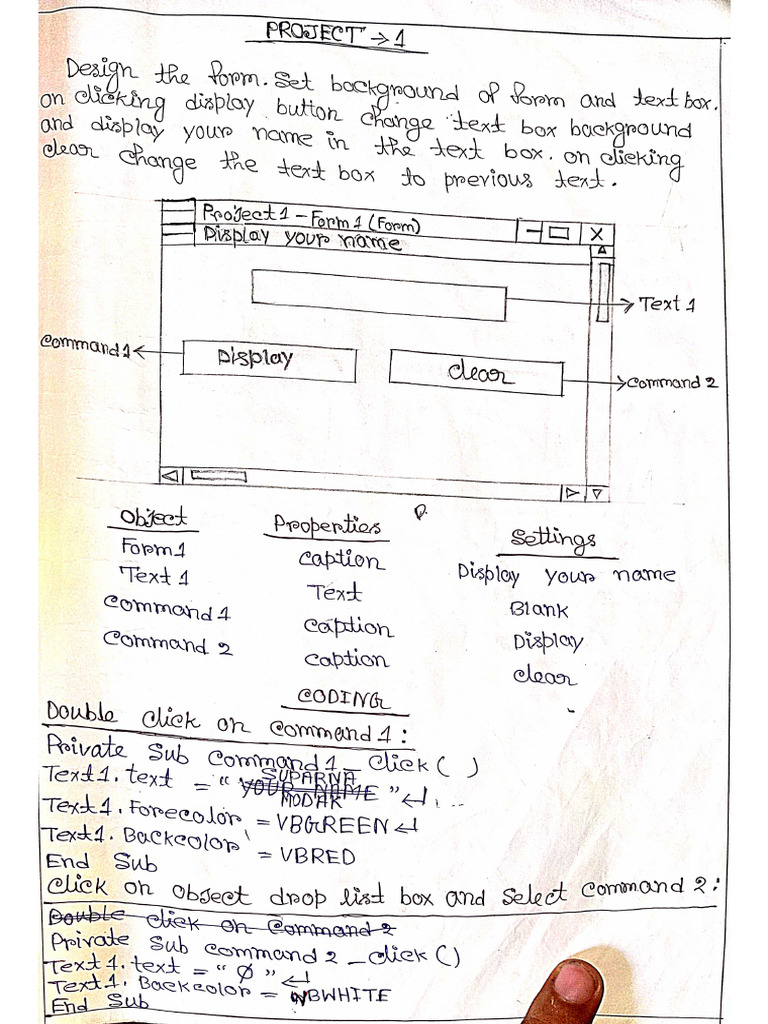 PROJECT → 1
Design the form. Set background of form and text box.
on clicking display button change text box background
and display your name in the text box. on clicking
clear change the text box to previous text.
Project 1 - Form 1 (Form)
Display your name
Text 1
Command 1
Display
clear
Command 2
Object Properties Settings
Form 1 caption Display your name
Text 1 Text Blank
Command 1 caption Display
Command 2 caption clear
CODING
Double click on command 1:
Private Sub Command 1_ click ( )
SUPARNA
Text1. text = "YOUR NAME" ↵ ...
MODAK
Text1. Forecolor = VBGREEN ↵
Text1. Backcolor = VBRED
End Sub
click on object drop list box and select command 2:
Double click on Command 2
Private Sub command 2_click ()
Text1. text = "Ø" ↵
Text1. Backcolor = VBWHITE
End Sub